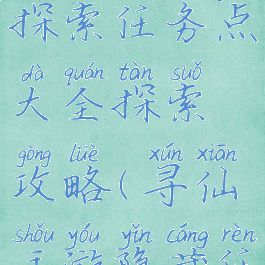 探索任务点
dà quán tàn suǒ
大全探索
gōng lüè xún xiān
攻略(寻仙
shǒu yóu yǐn cáng rèn
手游隐藏任